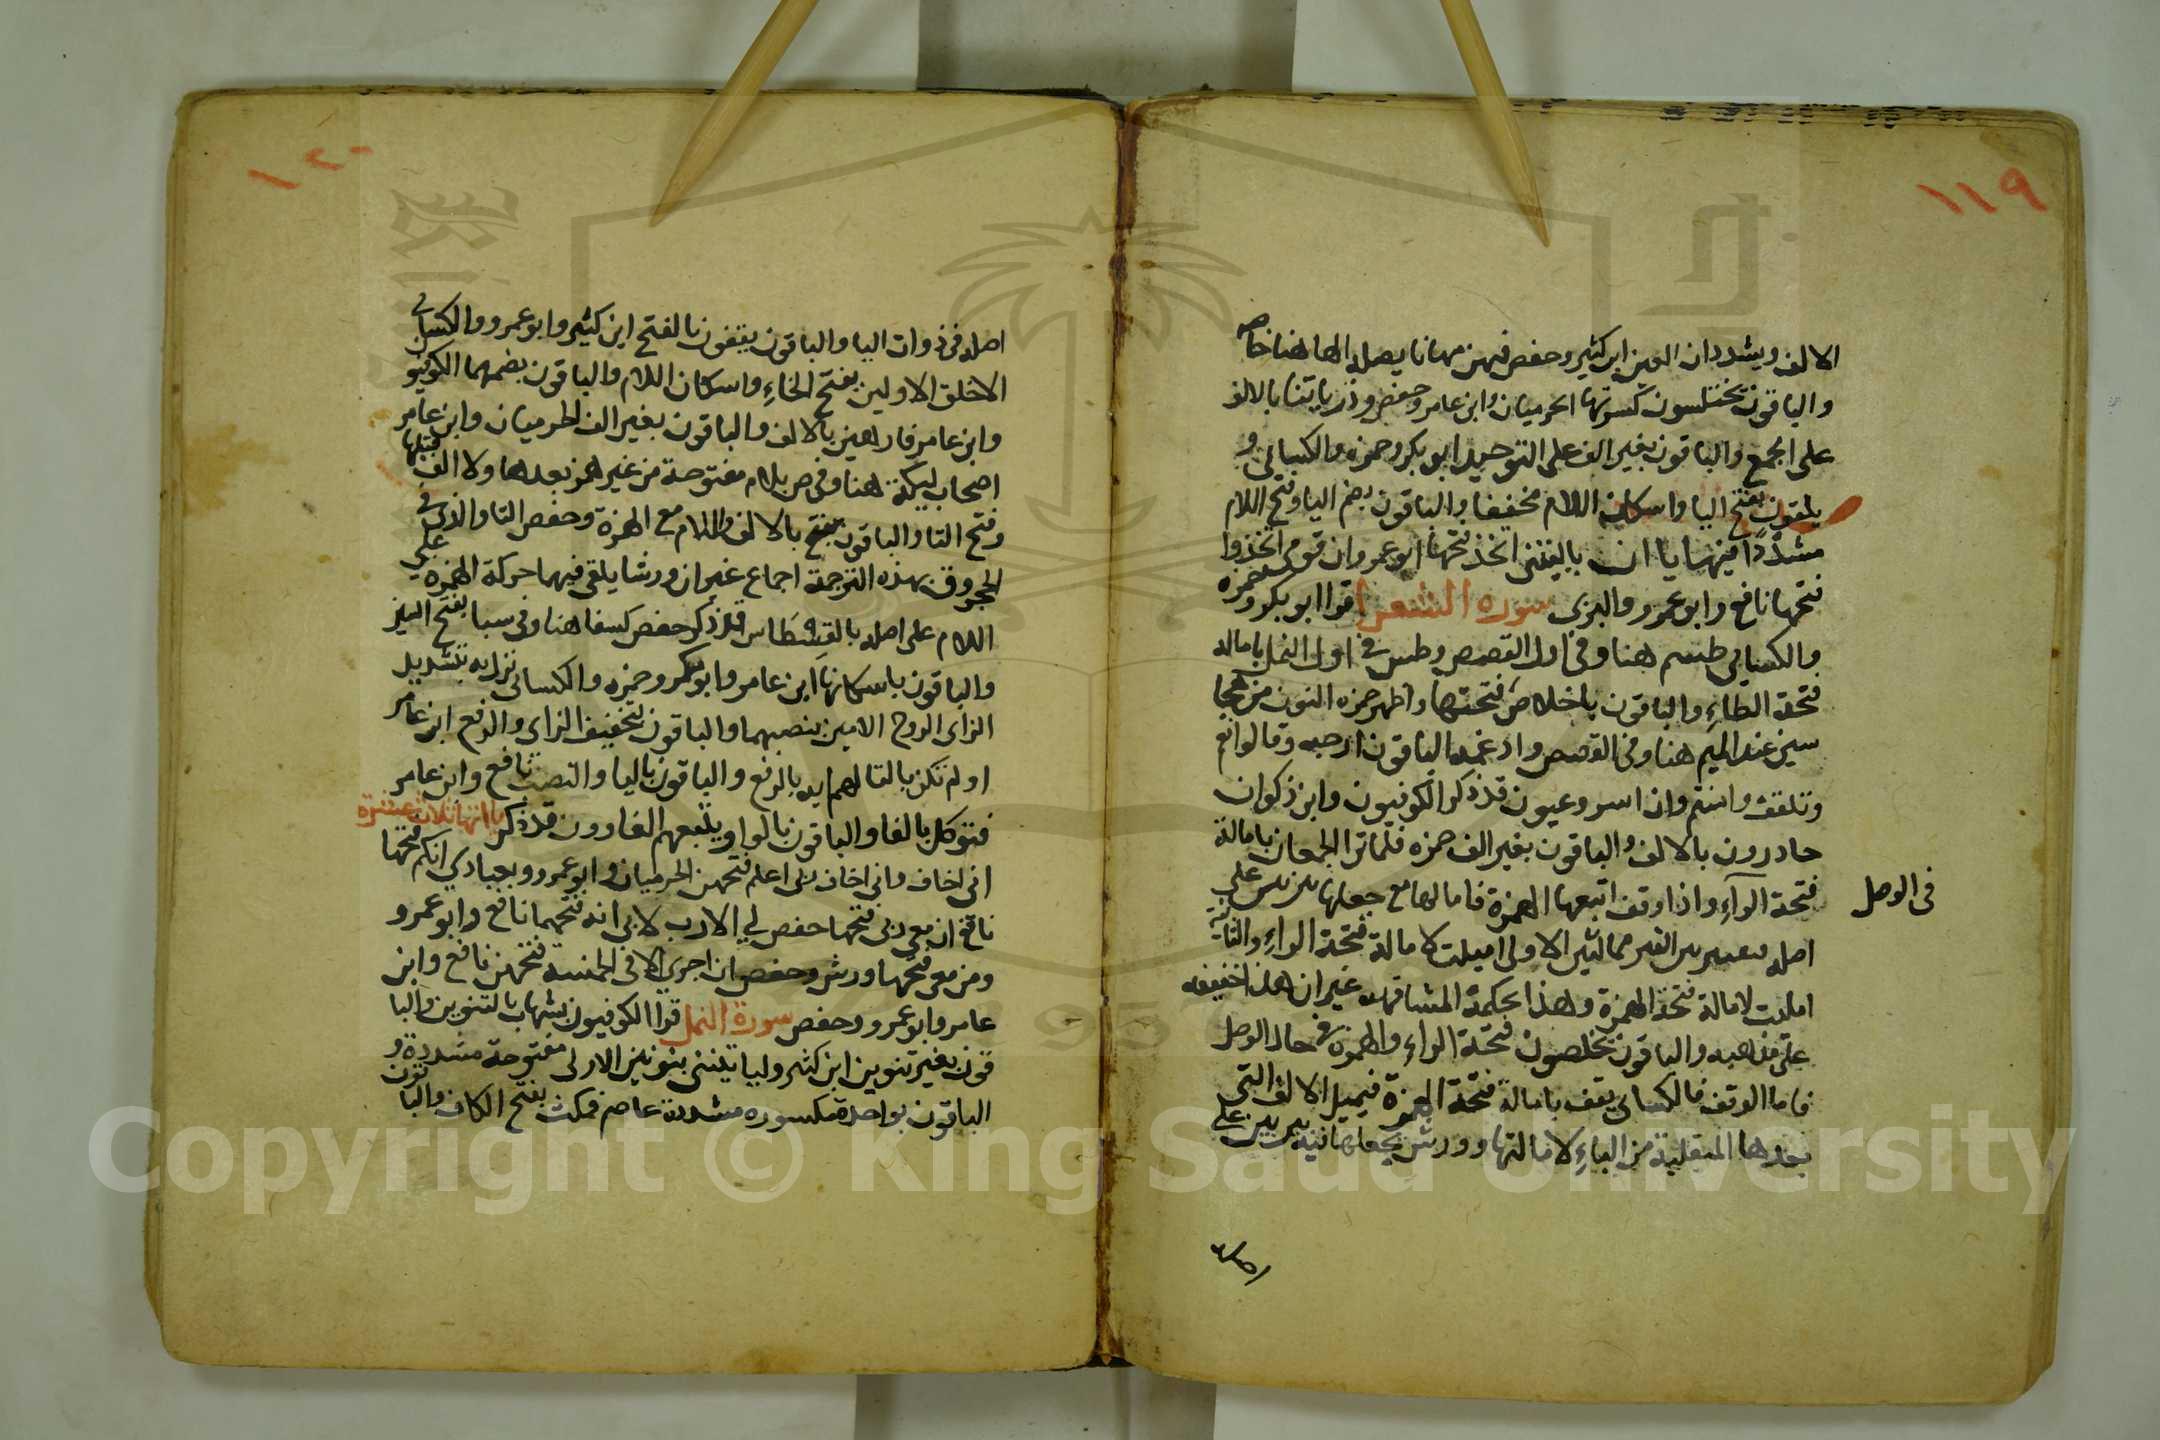 ١١٩
الالف ويشددان العين ابن كثير وحفص فيهن مهانا يصله الهاهنا خاصه
والباقون يختلسون كسرتها الحرميان وابن عامر وحفص وذرياتنا بالالف
على الجمع والباقون بغير الف على التوحيد ابو بكر وحمزه والكسائى و
يلقون بفتح اليا واسكان اللام مخففا والباقون بضم اليا وفتح اللام
مشددا فيها ياان ياليتنى اتخذ فتحها ابو عمرو ان قومى اتخذوا
فتحها نافع وابو عمرو والبزى سوره الشعرا قرا ابو بكر وحمزه
والكسايى طسم هنا وفى اول القصص وطس فى اول النمل بامالة
فتحة الطاءِ والباقون باخلاص فتحتها واظهر حمزه النون من هجا
سين عند الميم هنا وفى القصص وادغمه الباقون ارجه وقالوا نعم
وتلقف وامنتم وان اسر وعيون قد ذكر الكوفيون وابن ذكوان
حاذرون بالالف والباقون بغير الف حمزه فلما تراا الجمعان بامالة
فتحة الرآءِ واذا وقف اتبعها الهمزة فامالها مع جعلها بين بين على
فى الوصل
اصله فيصير بين الفين ممالتين الاولى اميلت لامالة فتحة الراءِ والثانية
اميلت لامالة فتحة الهمزة وهذا تحكمه المشافهه غير ان هذا حقيقته
على مذهبه والباقون يخلصون فتحة الراءِ والهمزه فى حال الوصل
فاما الوقف فالكسائى يقف بامالة فتحة الهمزة فيميل الالف التى
بعدها المنقلبة من الياءِ لامالتها وورش يجعلها فيه بين بين على
١٢٠
اصله فى ذوات اليا والباقون يقفون بالفتح ابن كثير وابو عمرو والكسائى
الاخلق الاولين بفتح الخاءِ واسكان اللام والباقون بضمهما الكوفيون
وابن عامر فارهين بالالف والباقون بغير الف الحرميان وابن عامر
اصحاب ليكة هنا وفى ص بلام مفتوحة من غير همز بعدها ولا الف قبلها
وفتح التا والباقون بالالف واللام مع الهمزة وخفض التا والذى فى
الحجر وق بهذه الترجمة اجماع غير ان ورشا يلقى فيهما حركة الهمزه على
اللام على اصله بالقسطاس قد ذكر حفص كسفا هنا وفى سبا بفتح السين
والباقون باسكانها ابن عامر وابو بكر وحمزه والكسائى نزل به بتشديد
الزاى الروح الامين بنصبهما والباقون بتخفيف الزاى والرفع ابن عامر
اولم تكن بالتا لهم ايه بالرفع والباقون باليا والنصب نافع وابن عامر
فتوكل بالفا والباقون بالواو يتبعهم الغاوون قد ذكر يااتها ثلاث عشرة
انى اخاف وانى اخاف ربى اعلم فتحهن الحرميان وابو عمرو وبعبادي انكم فتحها
نافع ان معى ربى فتحها حفص لى الا رب لابى انه فتحهما نافع وابو عمرو
ومن معى فتحها ورش وحفص ان اجرى الا فى الخمسة فتحهن نافع وابن
عامر وابو عمرو وحفص سورة النمل قرا الكوفيون بشهاب بالتنوين والبا
قون بغير تنوين ابن كثير وليا تيننى بنونين الاولى مفتوحة مشددة و
الباقون بواحدة مكسوره مشددة عاصم فمكث بفتح الكاف والباقون
Copyright © King Saud University